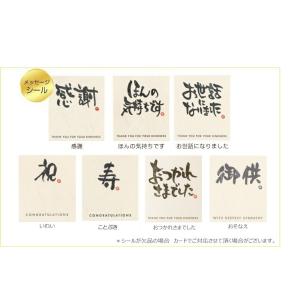 メッセージ
シール
感謝
THANK YOU FOR YOUR KINDNESS
感謝
ほんの
気持ちです
THANK YOU FOR YOUR KINDNESS
ほんの気持ちです
お世話
に
なりました
THANK YOU FOR YOUR KINDNESS
お世話になりました
祝
CONGRATULATIONS
いわい
寿
CONGRATULATIONS
ことぶき
おつかれ
さまでした
THANK YOU FOR YOUR KINDNESS
おつかれさまでした
御供
WITH DEEPEST SYMPATHY
おそなえ
*シールが欠品の場合 カードでご対応させて頂く場合がございます。